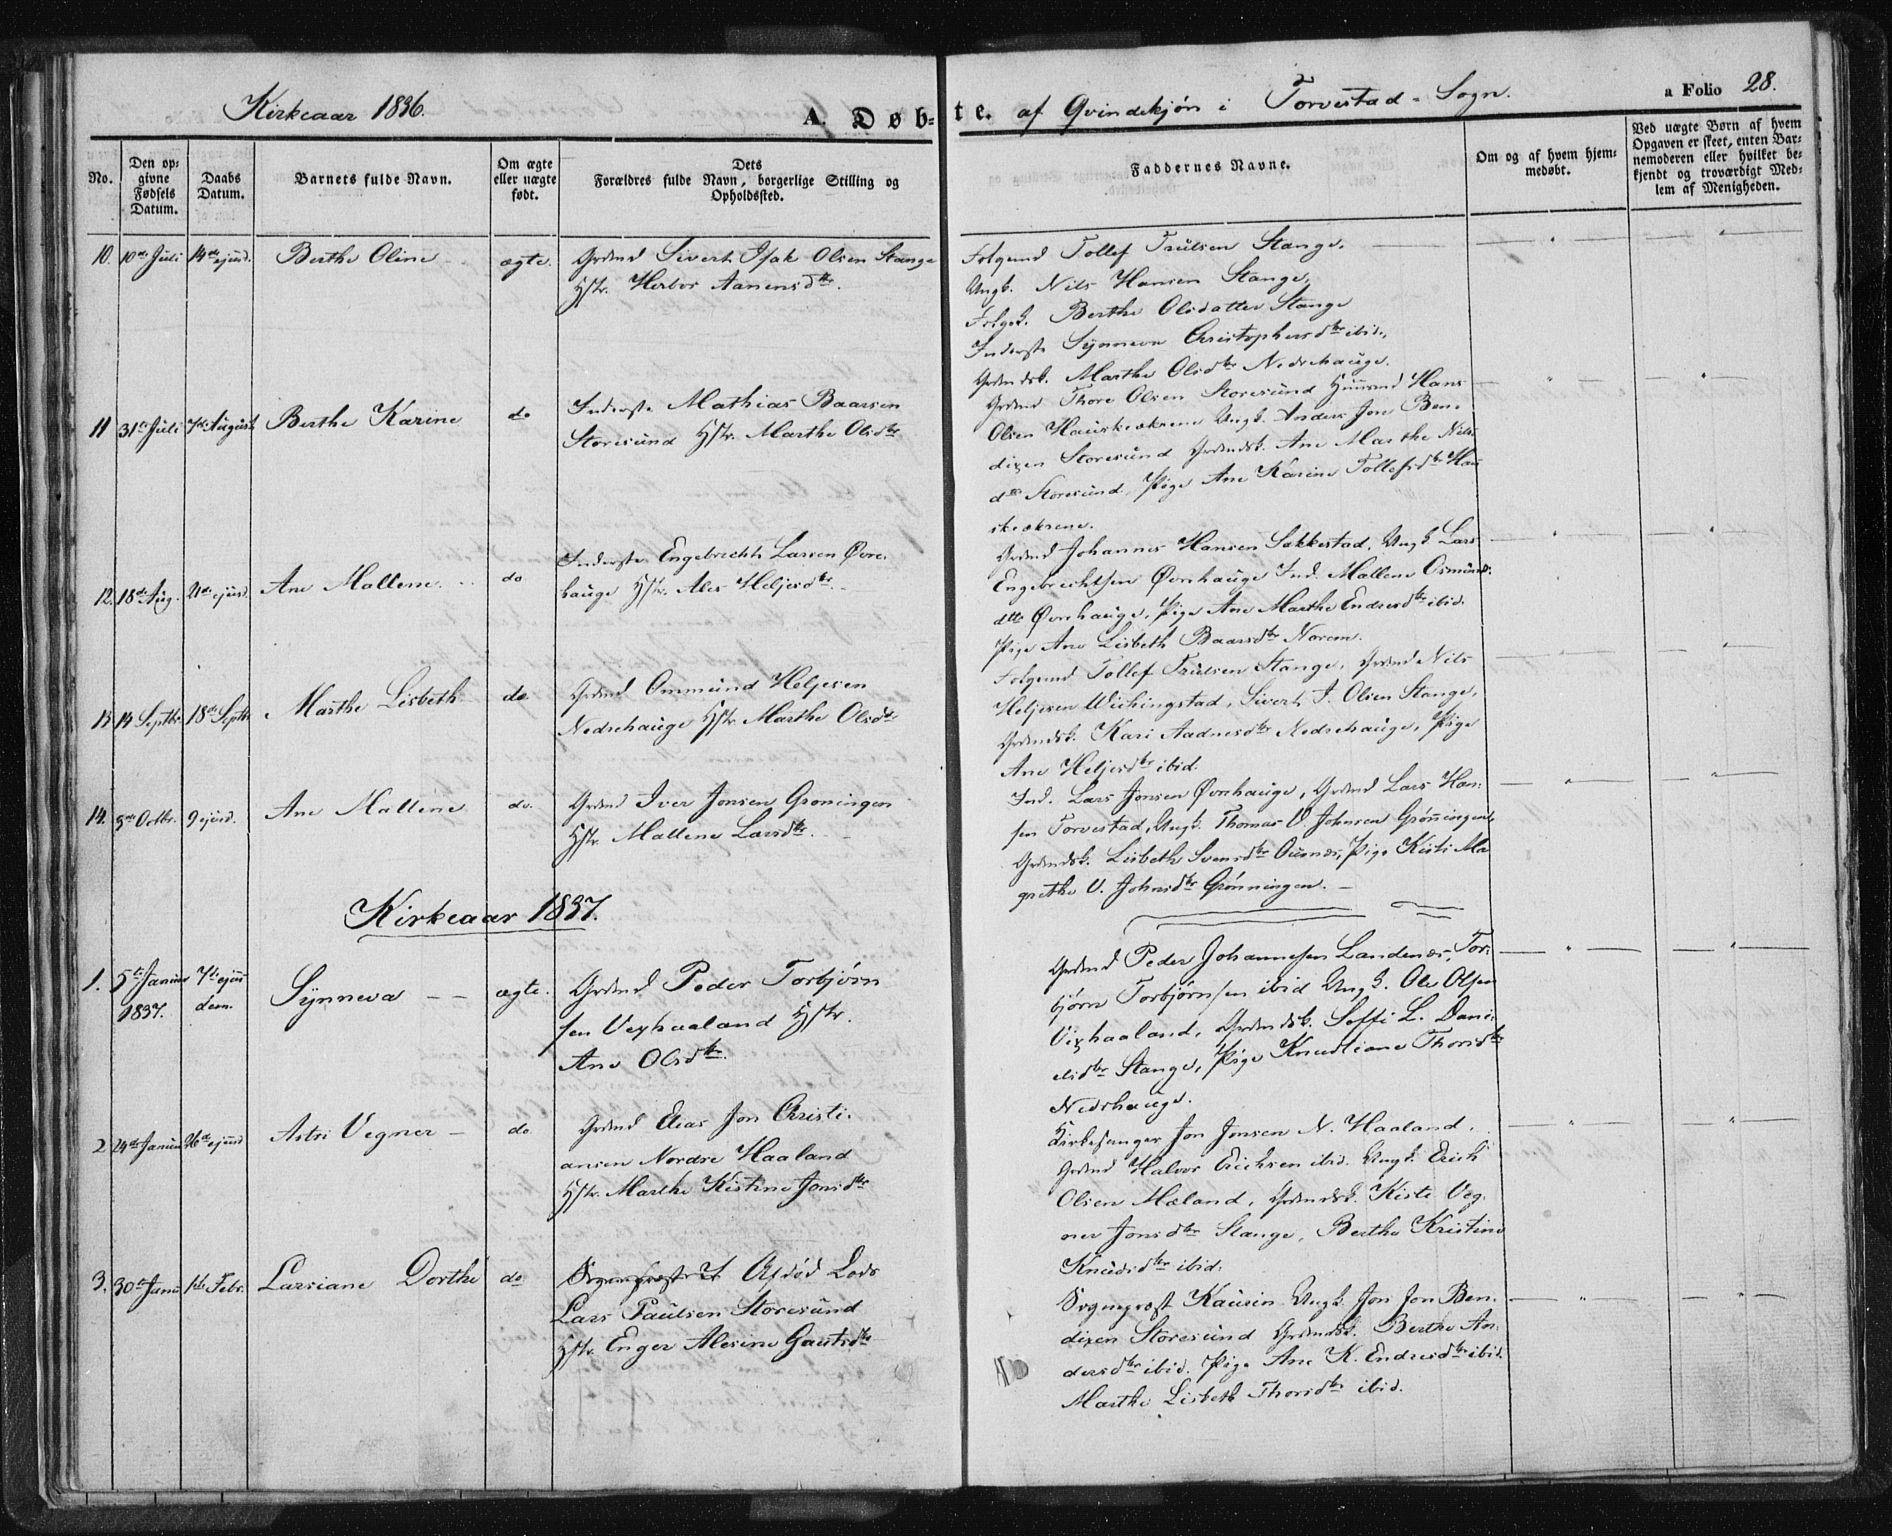 Kirkeaar 1836.
A. Døbte. af Qvindekjøn i Torvestad-Sogn.
a Folio 28.
No.
Den opgivne Fødsels Datum.
Daabs Datum.
Barnets fulde Navn.
Om ægte eller uægte født.
Dets Forældres fulde Navn, borgerlige Stilling og Opholdssted.
Faddernes Navne.
Om og af hvem hjemmedøbt.
Ved uægte Børn af hvem Opgaven er skeet, enten Barnemoderen eller hvilket bekjendt og troværdigt Medlem af Menigheden.
10. 10de Juli 14de ejusd. Berthe Oline ægte.
Grdmd Sivert Isak Olsen Stange
Hstr. Herbor Aanensdtr.
Folgemd Tollef Trulsen Stange.
Ungk. Nils Hansen Stange,
Folgek. Berthe Olsdatter Stange
Inderste Synneva Christophersdtr ibid.,
Grdmdsk. Marthe Olsdtr Nedrehauge.
11 31te Juli 7de August Berthe Karine do
Inderste Mathias Baarsen
Storesund Hstr. Marthe Olsdtr
Grdmd Thore Olsen Storesund Huusmd Hans
Olsen Hauskeakrene Ungk. Anders Jon Ben-
dixen Storesund Grdmdsk. Ane Marthe Nils
dtr Storesund, Pige Ane Karine Tollefsdtr Hau
skeakrene.
12. 18de Aug. 21de ejusd. Ane Mallene do
Inderste Engebrecht Larsen Øvre-
hauge Hstr. Ales Heljesdtr.
Grdmd Johannes Hansen Sakkestad, Ungk Lars
Engebrechtsen Øvrehauge Ind. Mallene Osmunds-
dtr Øvrehauge, Pige Ane Marthe Endresdtr ibid.
Pige Ane Lisbeth Baarsdtr Norem.
13 14 Septbr. 18de Septbr Marthe Lisbeth do
Grdmd Ommund Heljesen
Nedrehauge Hstr. Marthe Olsdtr
Folgemd Tollef Trulsen Stange, Grdmd Nils
Heljesen Wichingstad, Sivert I. Olsen Stange,
Grdmdsk. Kari Aadnesdtr Nedrehauge, Pige
Ane Heljesdtr ibid.
14. 3de Octbr. 9 ejusd. Ane Mallene do.
Grdmd Iver Jonsen Grønningen
Hstr. Mallene Larsdtr.
Ind. Lars Jonsen Øvrehauge, Grdmd Lars Han-
sen Torvestad, Ungk. Thomas V Johnsen Grønningen,
Grdmdsk. Lisbeth Svensdtr Ousnes, Pige Kisti Ma
grethe V. Johnsdtr Grønningen.
Kirkeaar 1837.
1. 5te Januar 1837. 7de ejus dem. Synneva ægte.
Grdmd Peder Torbjørn
sen Vexhaaland Hstr.
Ane Olsdtr.
Grdmd Peder Johannesen Landenæs, Tor-
bjørn Torbjørnsen ibid Ungk. Ole Olsen
Vixhaaland, Grdmdsk. Soffi L. Dani-
elsdtr Stange, Pige Knudliane Thorsdtr
Nedrhauge.
2 24de Januar 26de ejusd Astri Vegner do
Grdmd Elias Jon Christi-
ansen Nordre Haaland
Hstr. Marthe Kistine Jonsdtr
Kirkesanger Jon Jonsen N. Haaland.
Grdmd Halvor Erichsen ibid. Ungk. Erich
Olsen Mæland, Grdmdsk. Kisti Veg-
ner Jonsdtr Stange, Berthe Kristine
Knudsdtr ibid.
3. 30te Janu 1ste Febr. Larsiane Dorthe do
Afdød Lods
Lars Paulsen Storesund
Hstr. Enger Alesine Gautsdtr
Sognepræst Kaurin Ungk. Jon Jon Ben-
dixen Storesund Grdmdsk. Berthe An-
dersdtr ibid. Pige Ane K. Endresdtr ibid.
Marthe Lisbeth Thorsdtr ibid.